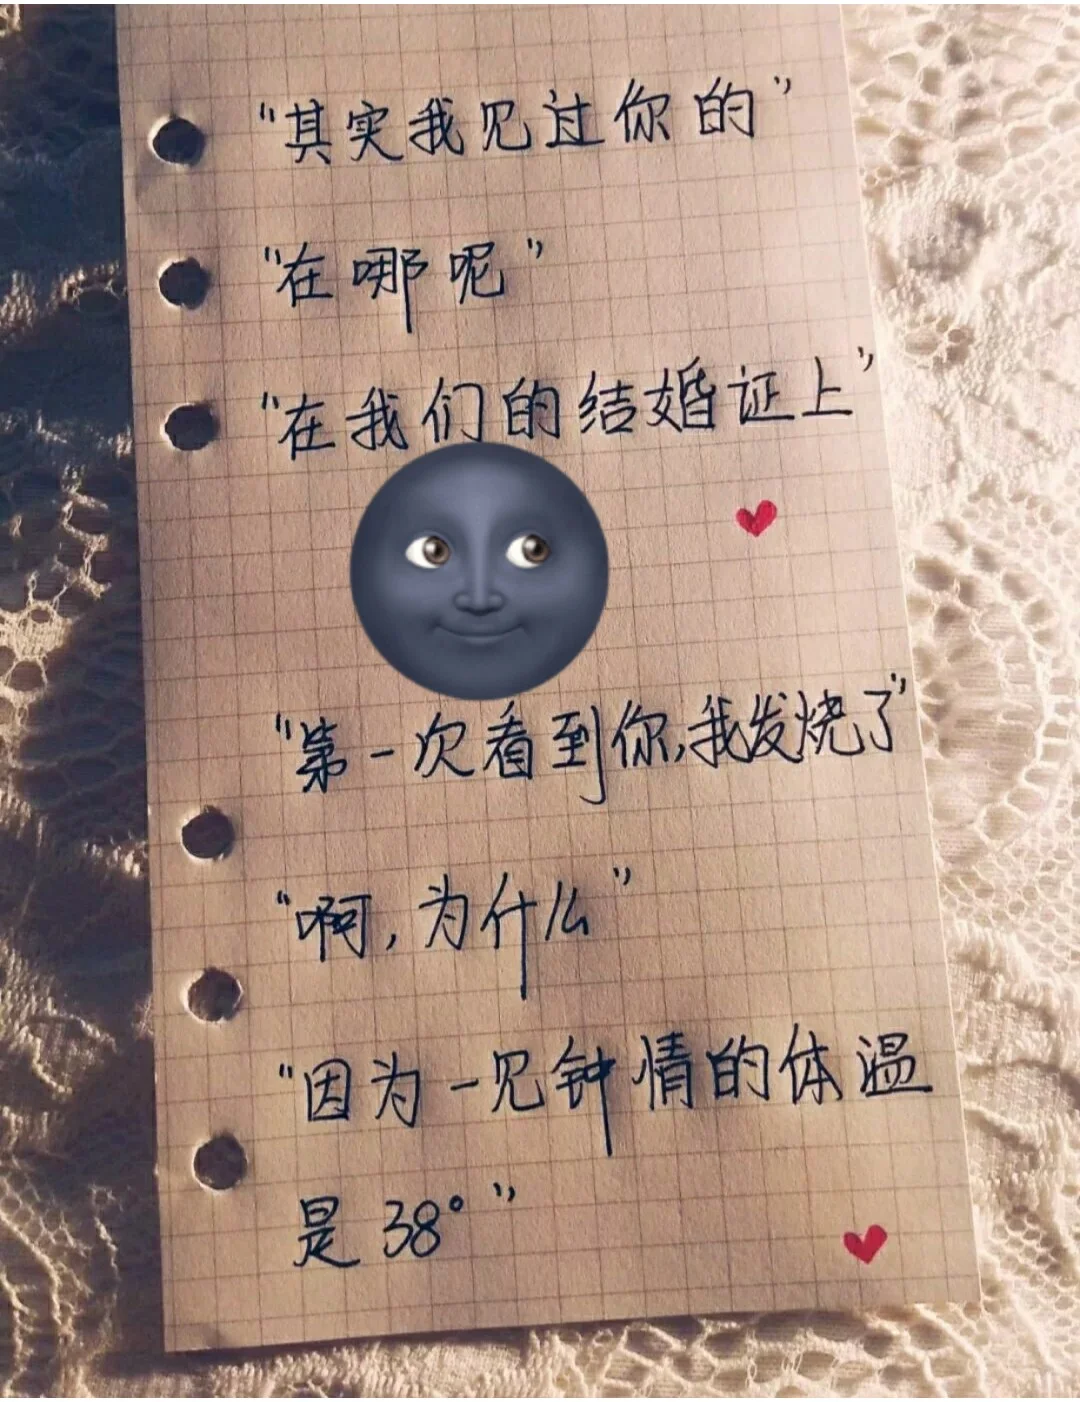 “其实我见过你的”
“在哪呢”
“在我们的结婚证上”
“第一次看到你,我发烧了”
“啊,为什么”
“因为一见钟情的体温
是 38°”